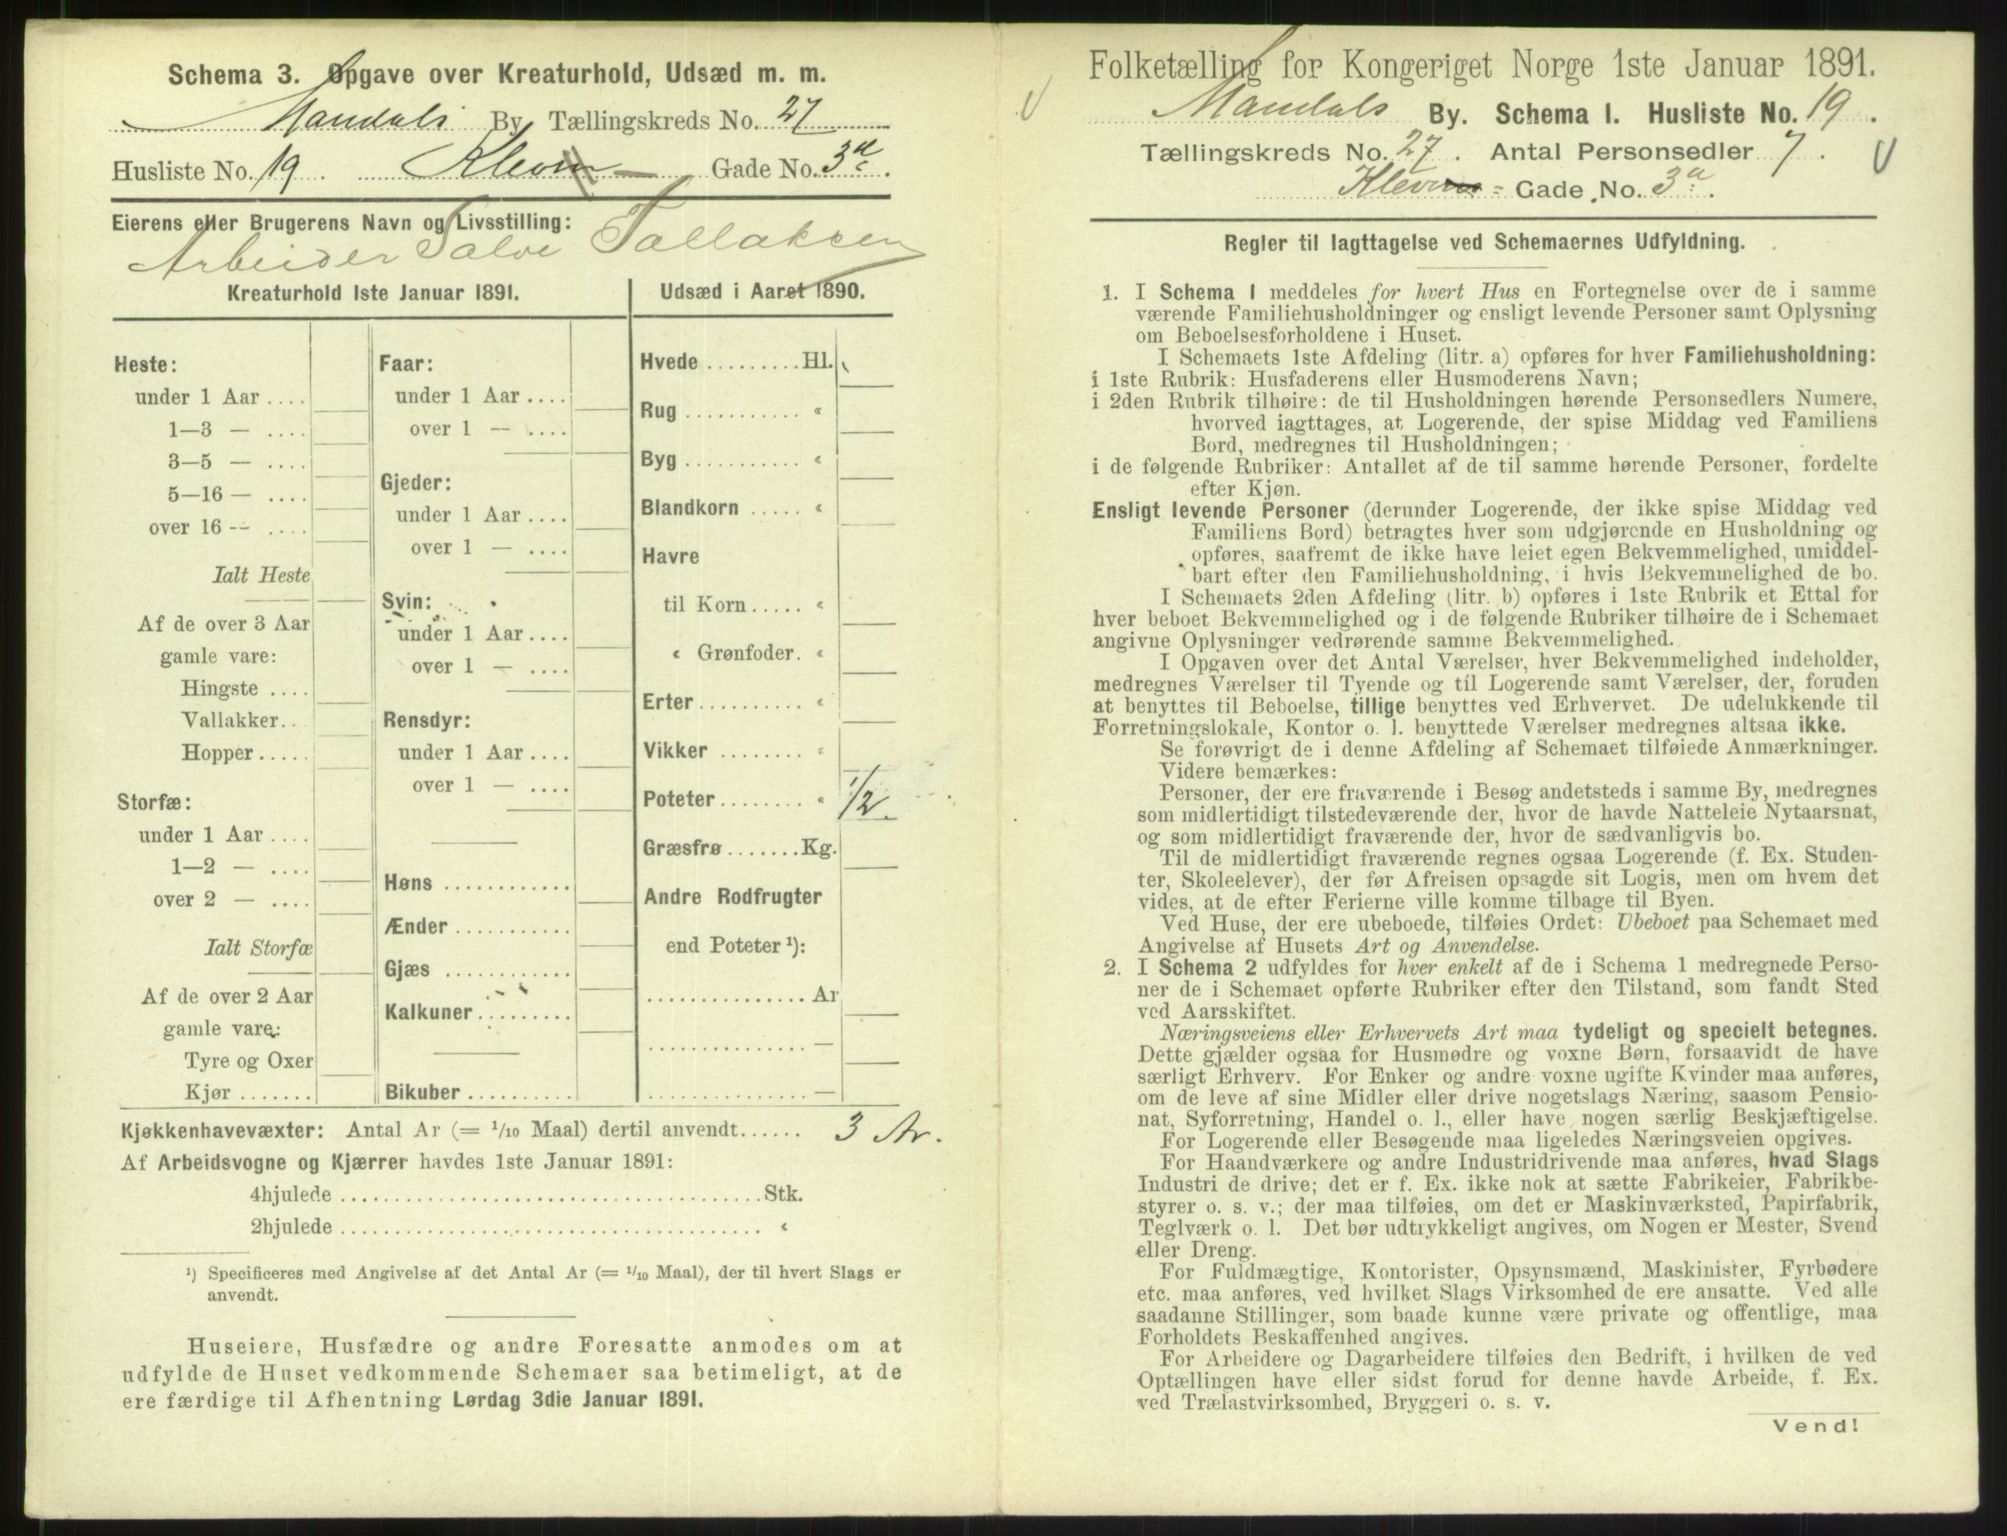 Schema 3. Opgave over Kreaturhold, Udsæd m. m.
Mandals By Tællingskreds No. 27
Husliste No. 19. Gade No. 3a.
Eierens eller Brugerens Navn og Livsstilling:
Arbeider Salve Tallaksen
Kreaturhold 1ste Januar 1891.
Heste:
under 1 Aar ....
1—3 — ....
3—5 — ....
5—16 — ....
over 16 — ....
Ialt Heste
Af de over 3 Aar
gamle vare:
Hingste ....
Vallakker..
Hopper.....
Storfæ:
under 1 Aar ....
1—2 — ....
over 2 — ....
Ialt Storfæ
Af de over 2 Aar
gamle vare:
Tyre og Oxer
Kjør .......
Faar:
under 1 Aar ....
over 1 — ....
Gjeder:
under 1 Aar ....
over 1 — ....
Svin:
under 1 Aar ....
over 1 — ....
Rensdyr:
under 1 Aar ....
over 1 — ....
Høns ............
Ænder ...........
Gjæs ............
Kalkuner.........
Bikuber..........
Udsæd i Aaret 1890.
Hvede .........Hl.
Rug ........... «
Byg ........... «
Blandkorn ..... «
Havre
til Korn ..... «
« Grønfoder. «
Erter.......... «
Vikker ........ «
Poteter........ « 1/2.
Græsfrø .......Kg.
Andre Rodfrugter
end Poteter ¹):
...............Ar
............... —
............... —
Kjøkkenhavevæxter: Antal Ar (= 1/10 Maal) dertil anvendt...... 3 Ar.
Af Arbeidsvogne og Kjærrer havdes 1ste Januar 1891:
4hjulede ........................................Stk.
2hjulede ........................................ «
¹) Specificeres med Angivelse af det Antal Ar (= 1/10 Maal), der til hvert Slags er
anvendt.
Huseiere, Husfædre og andre Foresatte anmodes om at
udfylde de Huset vedkommende Schemaer saa betimeligt, at de
ere færdige til Afhentning Lørdag 3die Januar 1891.
Folketælling for Kongeriget Norge 1ste Januar 1891.
Mandals By. Schema I. Husliste No. 19.
Tællingskreds No. 27. Antal Personsedler 7.
Gade No. 3a.
Regler til Iagttagelse ved Schemaernes Udfyldning.
1. I Schema 1 meddeles for hvert Hus en Fortegnelse over de i samme
værende Familiehusholdninger og ensligt levende Personer samt Oplysning
om Beboelsesforholdene i Huset.
I Schemaets 1ste Afdeling (litr. a) opføres for hver Familiehusholdning:
i 1ste Rubrik: Husfaderens eller Husmoderens Navn;
i 2den Rubrik tilhøire: de til Husholdningen hørende Personsedlers Numere,
hvorved iagttages, at Logerende, der spise Middag ved Familiens
Bord, medregnes til Husholdningen;
i de følgende Rubriker: Antallet af de til samme hørende Personer, fordelte
efter Kjøn.
Ensligt levende Personer (derunder Logerende, der ikke spise Middag ved
Familiens Bord) betragtes hver som udgjørende en Husholdning og
opføres, saafremt de ikke have leiet egen Bekvemmelighed, umiddel-
bart efter den Familiehusholdning, i hvis Bekvemmelighed de bo.
I Schemaets 2den Afdeling (litr. b) opføres i 1ste Rubrik et Ettal for
hver beboet Bekvemmelighed og i de følgende Rubriker tilhøire de i Schemaet
angivne Oplysninger vedrørende samme Bekvemmelighed.
I Opgaven over det Antal Værelser, hver Bekvemmelighed indeholder,
medregnes Værelser til Tyende og til Logerende samt Værelser, der, foruden
at benyttes til Beboelse, tillige benyttes ved Erhvervet. De udelukkende til
Forretningslokale, Kontor o. l. benyttede Værelser medregnes altsaa ikke.
Se forøvrigt de i denne Afdeling af Schemaet tilføiede Anmærkninger.
Videre bemærkes:
Personer, der ere fraværende i Besøg andetsteds i samme By, medregnes
som midlertidigt tilstedeværende der, hvor de havde Natteleie Nytaarsnat,
og som midlertidigt fraværende der, hvor de sædvanligvis bo.
Til de midlertidigt fraværende regnes ogsaa Logerende (f. Ex. Studen-
ter, Skoleelever), der før Afreisen opsagde sit Logis, men om hvem det
vides, at de efter Ferierne ville komme tilbage til Byen.
Ved Huse, der ere ubeboede, tilføies Ordet: Ubeboet paa Schemaet med
Angivelse af Husets Art og Anvendelse.
2. I Schema 2 udfyldes for hver enkelt af de i Schema 1 medregnede Perso-
ner de i Schemaet opførte Rubriker efter den Tilstand, som fandt Sted
ved Aarsskiftet.
Næringsveiens eller Erhvervets Art maa tydeligt og specielt betegnes.
Dette gjælder ogsaa for Husmødre og voxne Børn, forsaavidt de have
særligt Erhverv. For Enker og andre voxne ugifte Kvinder maa anføres,
om de leve af sine Midler eller drive nogetslags Næring, saasom Pensio-
nat, Syforretning, Handel o. l., eller have nogen særlig Beskjæftigelse.
For Logerende eller Besøgende maa ligeledes Næringsveien opgives.
For Haandværkere og andre Industridrivende maa anføres, hvad Slags
Industri de drive; det er f. Ex. ikke nok at sætte Fabrikeier, Fabrikbe-
styrer o. s. v.; der maa tilføies, om det er Maskinværksted, Papirfabrik,
Teglværk o. l. Det bør udtrykkeligt angives, om Nogen er Mester, Svend
eller Dreng.
For Fuldmægtige, Kontorister, Opsynsmænd, Maskinister, Fyrbødere
etc. maa anføres, ved hvilket Slags Virksomhed de ere ansatte. Ved alle
saadanne Stillinger, som baade kunne være private og offentlige, maa
Forholdets Beskaffenhed angives.
For Arbeidere og Dagarbeidere tilføies den Bedrift, i hvilken de ved
Optællingen have eller sidst forud for denne havde Arbeide, f. Ex.
ved Trælastvirksomhed, Bryggeri o. s. v.
Vend!